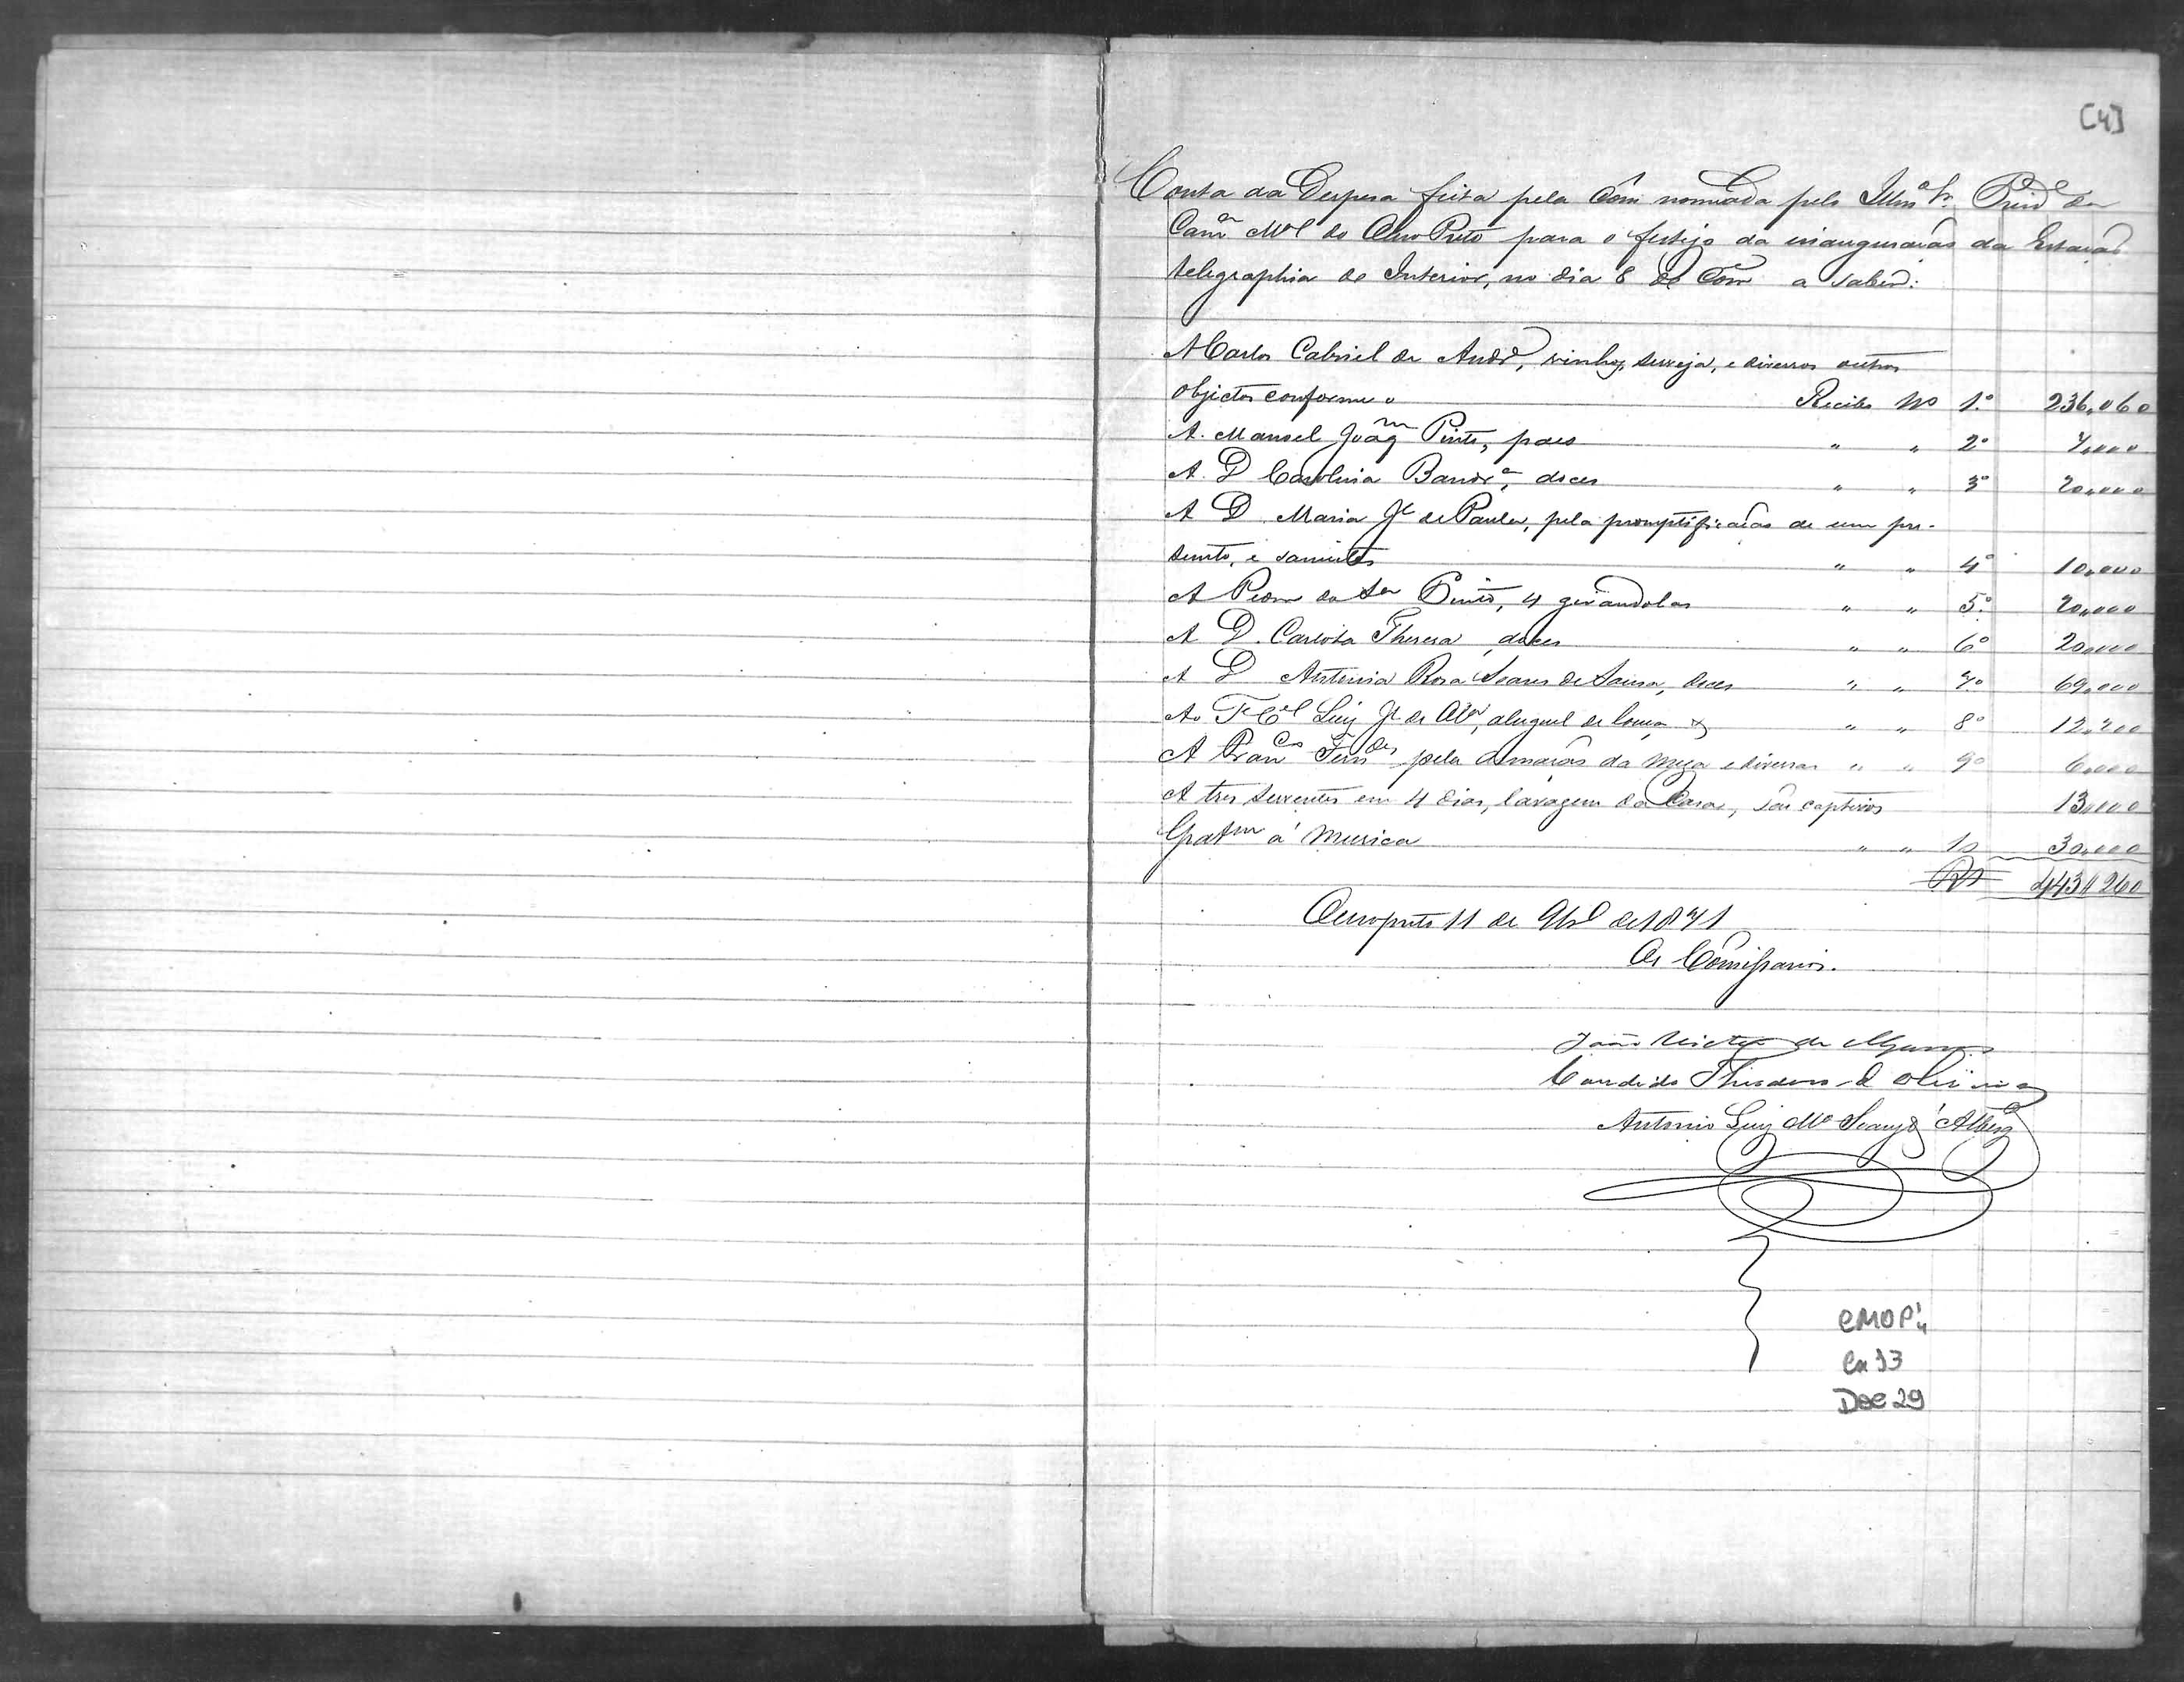 [4]
Conta da Despesa feita pela Com nomiada pelo Illmo Sr. Presid.e da
Camª Mal do Ouro Preto para o festijo da inauguração da Estação
telegraphia do Interior, no dia 8 do Corr.e a saber:
A Carlos Gabriel de Andr.e, vinhos, serveja, e diversos outros
objectos conforme o Recibo No 1.º 236,060
A. Manoel Joaqm Pinto, paes " " 2º 7,000
A. D Carolina Bandrª, doces " " 3º 20,000
A D. Maria Je de Paula, pela promptificação de um pre-
sunto, e " " 4º 10,000
A da Sª Pinto, 4 girandolas " " 5.º 20,000
A D. Carlota Theresa, doces " " 6º 20,000
A D Antonia Rosa Soares de Sousa, doces " " 7º 69,000
Ao Te Cel Luiz Je de, aluguel de louça " " 8º 12,200
A Francº Ferndes pela armação da meza e diversas " " 9º 6,000
A tres serventes em 4 dias, lavagem da Casa, são captivos 13,000
Gratam á Musica " " 10 30,000
Rs 443,260
Ouropreto 11 de 9br.o de 1871
Os Comissarios.
João de
Candido Theodoro d Oliveira
Antonio Luiz Mº
CMOP
Cx 13
Doc 29